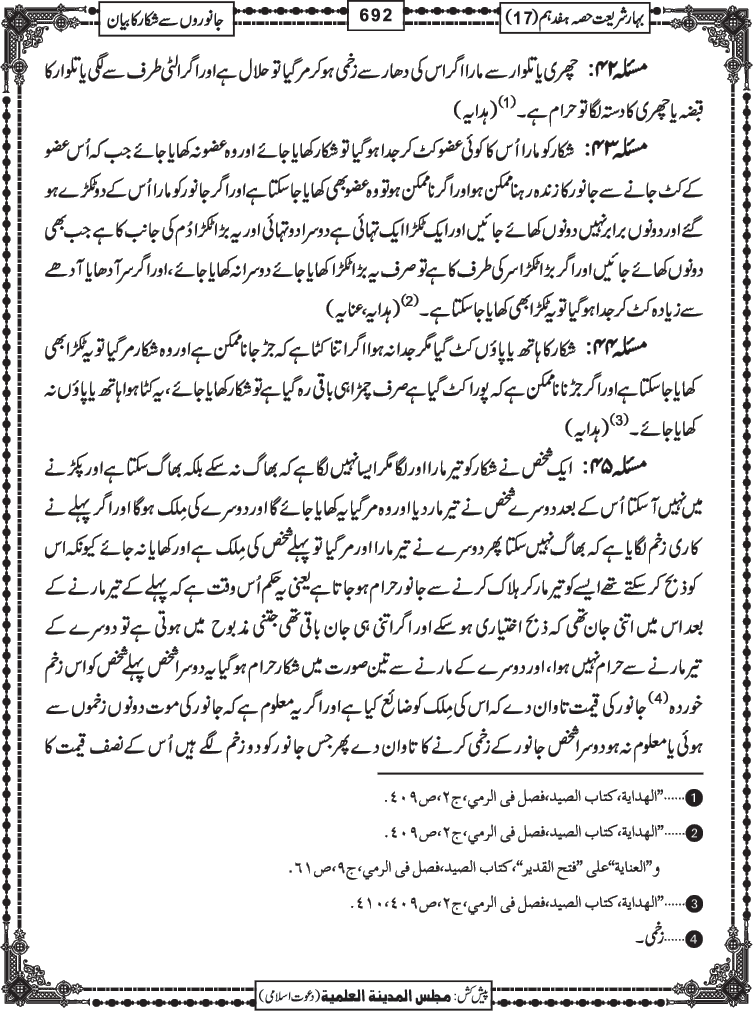 بہار شریعت حصہ ہفدہم (17)
692
جانوروں سے شکار کا بیان
مسئلہ ۴۲: چھری یا تلوار سے مارا اگر اس کی دھار سے زخمی ہو کر مر گیا تو حلال ہے اور اگر الٹی طرف سے لگی یا تلوار کا
قبضہ یا چھری کا دستہ لگا تو حرام ہے۔(1) (ہدایہ)
مسئلہ ۴۳: شکار کو مارا اُس کا کوئی عضو کٹ کر جدا ہو گیا تو شکار کھایا جائے اور وہ عضو نہ کھایا جائے جب کہ اُس عضو
کے کٹ جانے سے جانور کا زندہ رہنا ممکن ہو اور اگر ناممکن ہو تو وہ عضو بھی کھایا جا سکتا ہے اور اگر جانور کو مارا اُس کے دو ٹکڑے ہو
گئے اور دونوں برابر نہیں دونوں کھائے جائیں اور ایک ٹکڑا ایک تہائی ہے دوسرا دو تہائی اور یہ بڑا ٹکڑا دُم کی جانب کا ہے جب بھی
دونوں کھائے جائیں اور اگر بڑا ٹکڑا سر کی طرف کا ہے تو صرف یہ بڑا ٹکڑا کھایا جائے دوسرا نہ کھایا جائے، اور اگر سر آدھا یا آدھے
سے زیادہ کٹ کر جدا ہو گیا تو یہ ٹکڑا بھی کھایا جا سکتا ہے۔(2) (ہدایہ، عنایہ)
مسئلہ ۴۴: شکار کا ہاتھ یا پاؤں کٹ گیا مگر جدا نہ ہوا اگر اتنا کٹا ہے کہ جڑ جانا ممکن ہے اور وہ شکار مر گیا تو یہ ٹکڑا بھی
کھایا جا سکتا ہے اور اگر جڑنا ناممکن ہے کہ پورا کٹ گیا ہے صرف چمڑا ہی باقی رہ گیا ہے تو شکار کھایا جائے، یہ کٹا ہوا ہاتھ یا پاؤں نہ
کھایا جائے۔(3) (ہدایہ)
مسئلہ ۴۵: ایک شخص نے شکار کو تیر مارا اور لگا مگر ایسا نہیں لگا ہے کہ بھاگ نہ سکے بلکہ بھاگ سکتا ہے اور پکڑنے
میں نہیں آ سکتا اُس کے بعد دوسرے شخص نے تیر مار دیا اور وہ مر گیا یہ کھایا جائے گا اور دوسرے کی مِلک ہوگا اور اگر پہلے نے
کاری زخم لگایا ہے کہ بھاگ نہیں سکتا پھر دوسرے نے تیر مارا اور مر گیا تو پہلے شخص کی مِلک ہے اور کھایا نہ جائے کیونکہ اس
کو ذبح کر سکتے تھے ایسے کو تیر مار کر ہلاک کرنے سے جانور حرام ہو جاتا ہے یعنی یہ حکم اُس وقت ہے کہ پہلے کے تیر مارنے کے
بعد اس میں اتنی جان تھی کہ ذبح اختیاری ہو سکے اور اگر اتنی ہی جان باقی تھی جتنی مذبوح میں ہوتی ہے تو دوسرے کے
تیر مارنے سے حرام نہیں ہوا، اور دوسرے کے مارنے سے تین صورت میں شکار حرام ہو گیا یہ دوسرا شخص پہلے شخص کو اس زخم
خوردہ(4) جانور کی قیمت تاوان دے کہ اس کی مِلک کو ضائع کیا ہے اور اگر یہ معلوم ہے کہ جانور کی موت دونوں زخموں سے
ہوئی یا معلوم نہ ہو دوسرا شخص جانور کے زخمی کرنے کا تاوان دے پھر جس جانور کو دو زخم لگے ہیں اُس کے نصف قیمت کا
1......"الهداية، كتاب الصيد، فصل فى الرمي، ج٢، ص٤٠٩.
2......"الهداية، كتاب الصيد، فصل فى الرمي، ج٢، ص٤٠٩.
و"العناية"على"فتح القدير"، كتاب الصيد، فصل فى الرمي، ج٩، ص٦١.
3......"الهداية، كتاب الصيد، فصل فى الرمي، ج٢، ص٤٠٩، ٤١٠.
4......زخمی۔
پیش کش: مجلس المدينة العلمية (دعوت اسلامی)